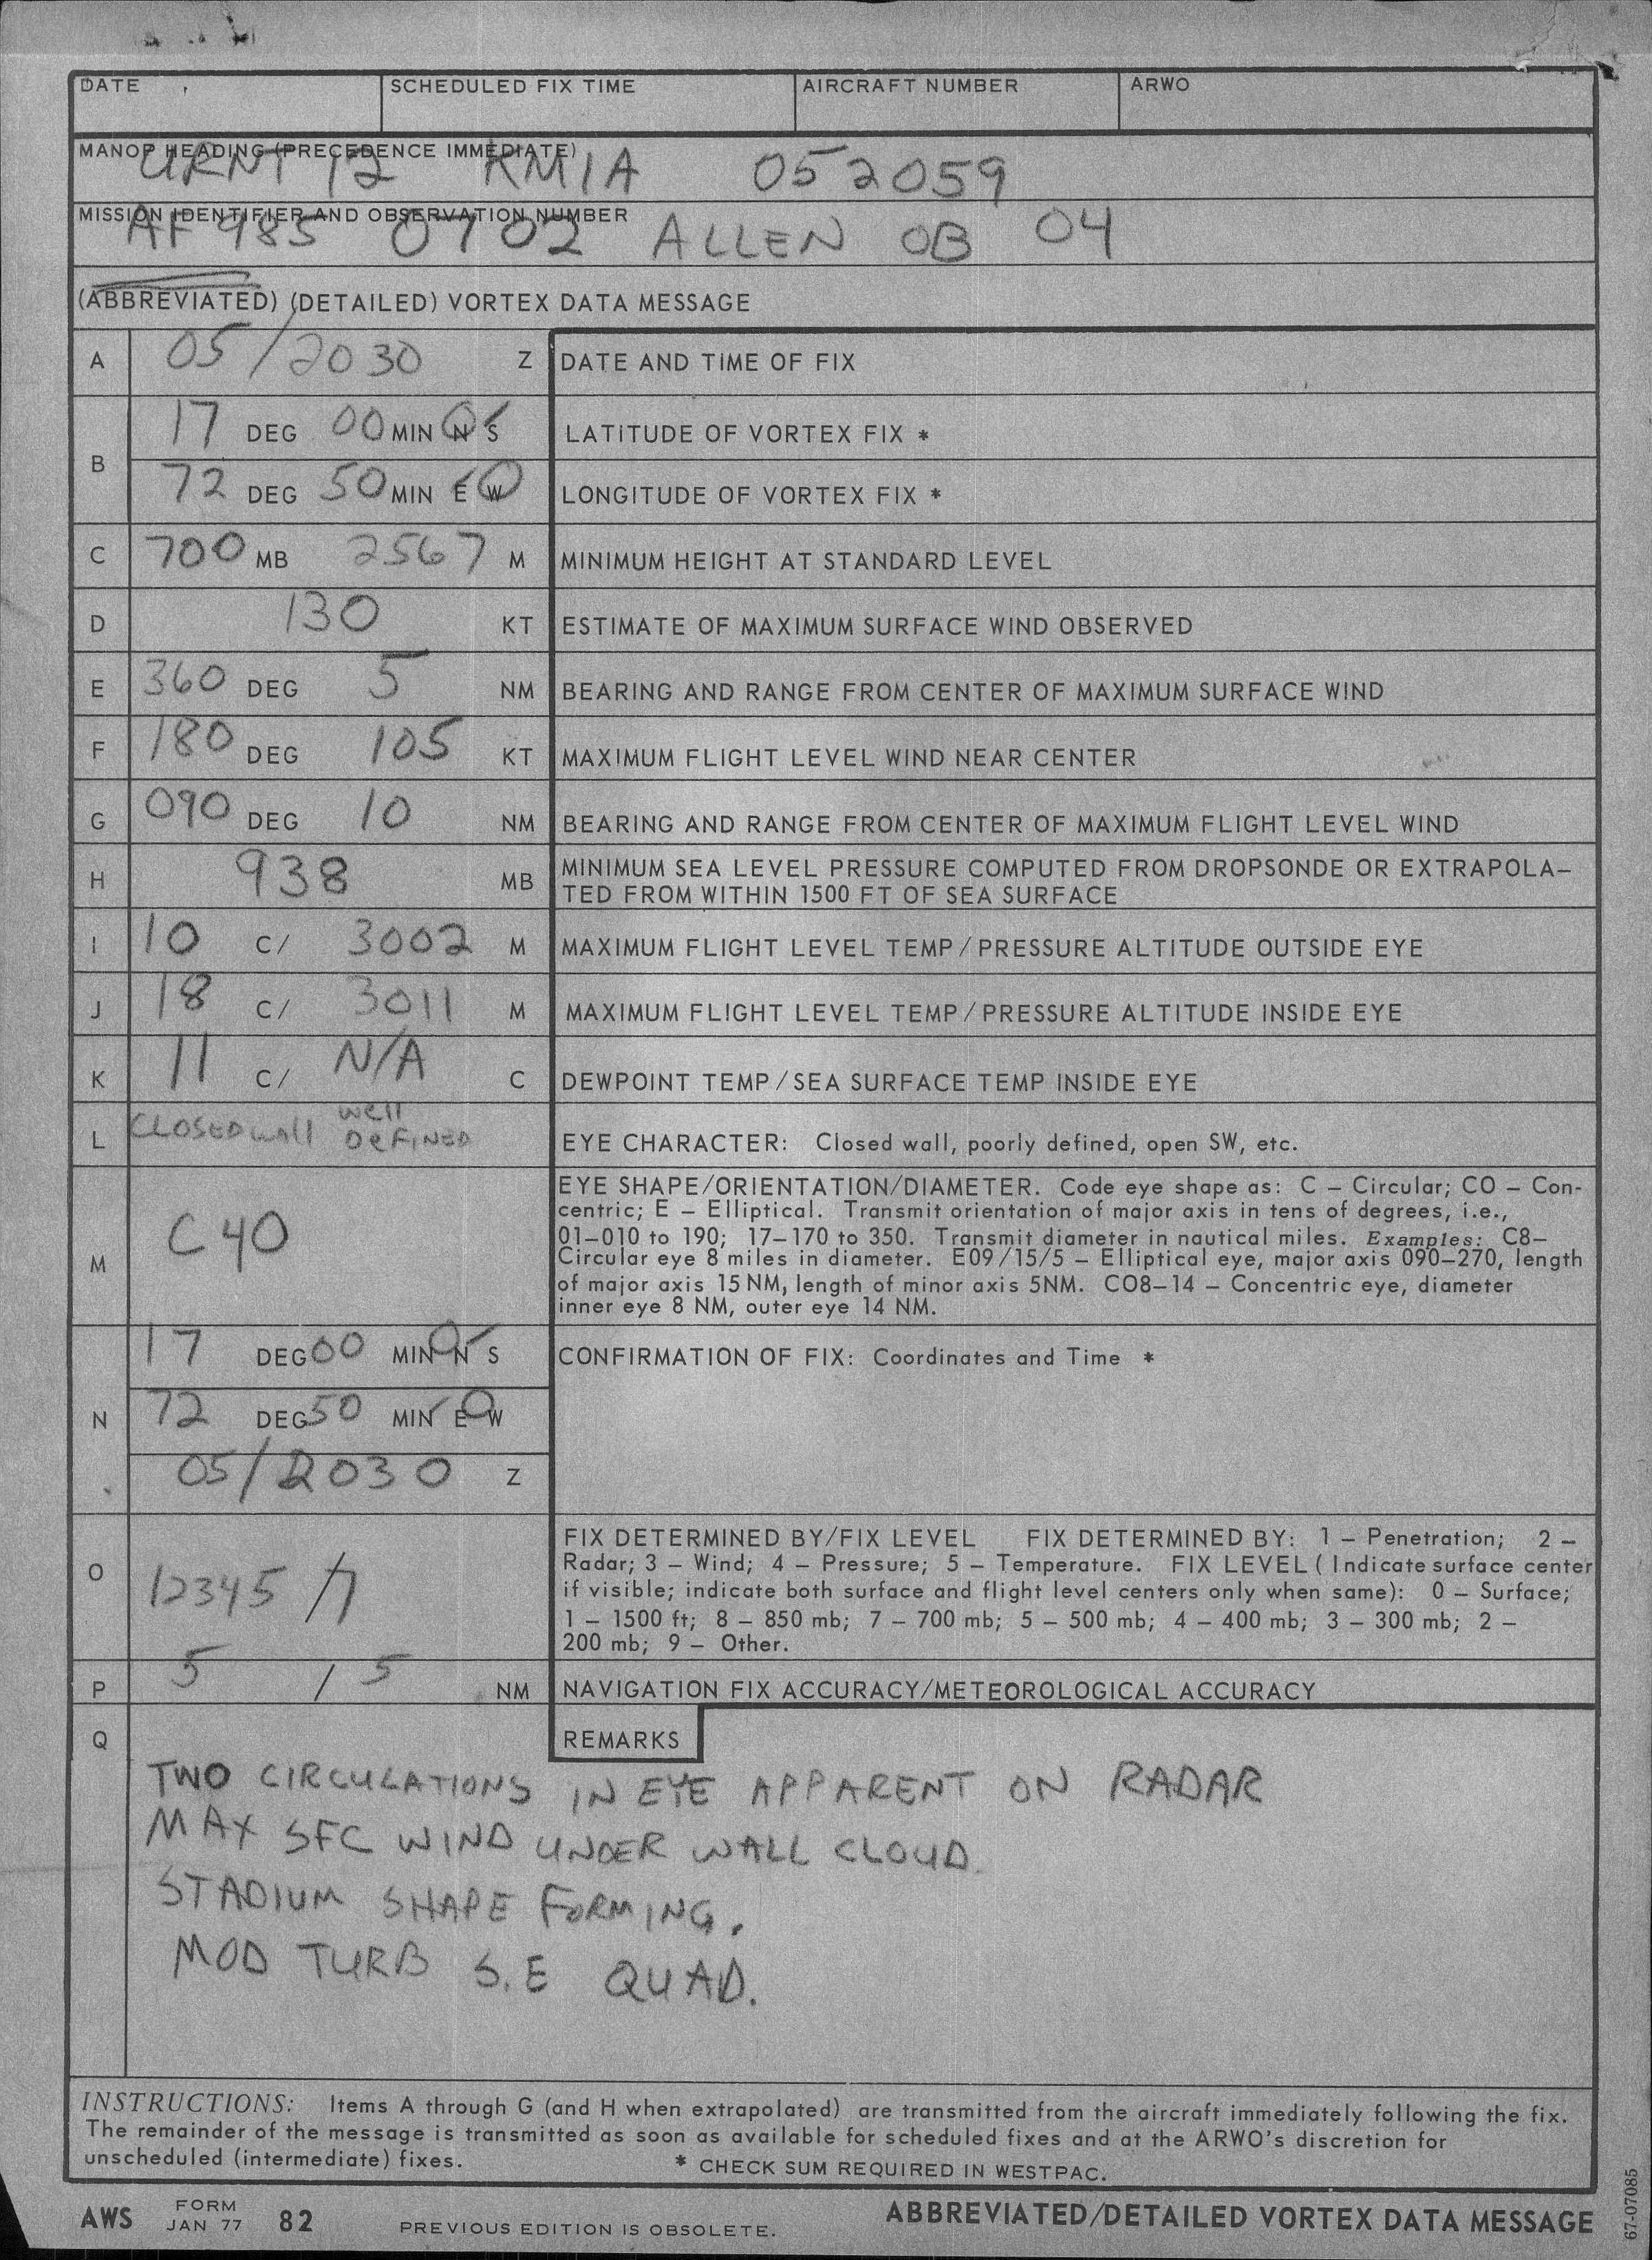 DATE SCHEDULED FIX TIME AIRCRAFT NUMBER ARWO
MANOP HEADING (PRECEDENCE IMMEDIATE)
URNT 12 KMIA 052059
MISSION IDENTIFIER AND OBSERVATION NUMBER
AF985 0702 ALLEN OB 04
(ABBREVIATED) (DETAILED) VORTEX DATA MESSAGE
A 05/2030 Z DATE AND TIME OF FIX
B 17 DEG 00 MIN N S LATITUDE OF VORTEX FIX *
72 DEG 50 MIN E W LONGITUDE OF VORTEX FIX *
C 700 MB 2567 M MINIMUM HEIGHT AT STANDARD LEVEL
D 130 KT ESTIMATE OF MAXIMUM SURFACE WIND OBSERVED
E 360 DEG 5 NM BEARING AND RANGE FROM CENTER OF MAXIMUM SURFACE WIND
F 180 DEG 105 KT MAXIMUM FLIGHT LEVEL WIND NEAR CENTER
G 090 DEG 10 NM BEARING AND RANGE FROM CENTER OF MAXIMUM FLIGHT LEVEL WIND
H 938 MB MINIMUM SEA LEVEL PRESSURE COMPUTED FROM DROPSONDE OR EXTRAPOLA–
TED FROM WITHIN 1500 FT OF SEA SURFACE
I 10 C/ 3002 M MAXIMUM FLIGHT LEVEL TEMP/PRESSURE ALTITUDE OUTSIDE EYE
J 18 C/ 3011 M MAXIMUM FLIGHT LEVEL TEMP/PRESSURE ALTITUDE INSIDE EYE
K 11 C/ N/A C DEWPOINT TEMP/SEA SURFACE TEMP INSIDE EYE
L CLOSED wall well DeFINED EYE CHARACTER: Closed wall, poorly defined, open SW, etc.
M C40 EYE SHAPE/ORIENTATION/DIAMETER. Code eye shape as: C – Circular; CO – Con-
centric; E – Elliptical. Transmit orientation of major axis in tens of degrees, i.e.,
01–010 to 190; 17–170 to 350. Transmit diameter in nautical miles. Examples: C8–
Circular eye 8 miles in diameter. E09/15/5 – Elliptical eye, major axis 090–270, length
of major axis 15 NM, length of minor axis 5NM. CO8–14 – Concentric eye, diameter
inner eye 8 NM, outer eye 14 NM.
N 17 DEG 00 MIN N S CONFIRMATION OF FIX: Coordinates and Time *
72 DEG 50 MIN E W
05/2030 Z
O 12345 /7 FIX DETERMINED BY/FIX LEVEL FIX DETERMINED BY: 1 – Penetration; 2 –
Radar; 3 – Wind; 4 – Pressure; 5 – Temperature. FIX LEVEL (Indicate surface center
if visible; indicate both surface and flight level centers only when same): 0 – Surface;
1 – 1500 ft; 8 – 850 mb; 7 – 700 mb; 5 – 500 mb; 4 – 400 mb; 3 – 300 mb; 2 –
200 mb; 9 – Other.
P 5 / 5 NM NAVIGATION FIX ACCURACY/METEOROLOGICAL ACCURACY
Q REMARKS
TWO CIRCULATIONS IN EYE APPARENT ON RADAR
MAX SFC WIND UNDER WALL CLOUD.
STADIUM SHAPE FORMING.
MOD TURB S.E QUAD.
INSTRUCTIONS: Items A through G (and H when extrapolated) are transmitted from the aircraft immediately following the fix.
The remainder of the message is transmitted as soon as available for scheduled fixes and at the ARWO's discretion for
unscheduled (intermediate) fixes. * CHECK SUM REQUIRED IN WESTPAC.
AWS FORM JAN 77 82 PREVIOUS EDITION IS OBSOLETE. ABBREVIATED/DETAILED VORTEX DATA MESSAGE
67-07085